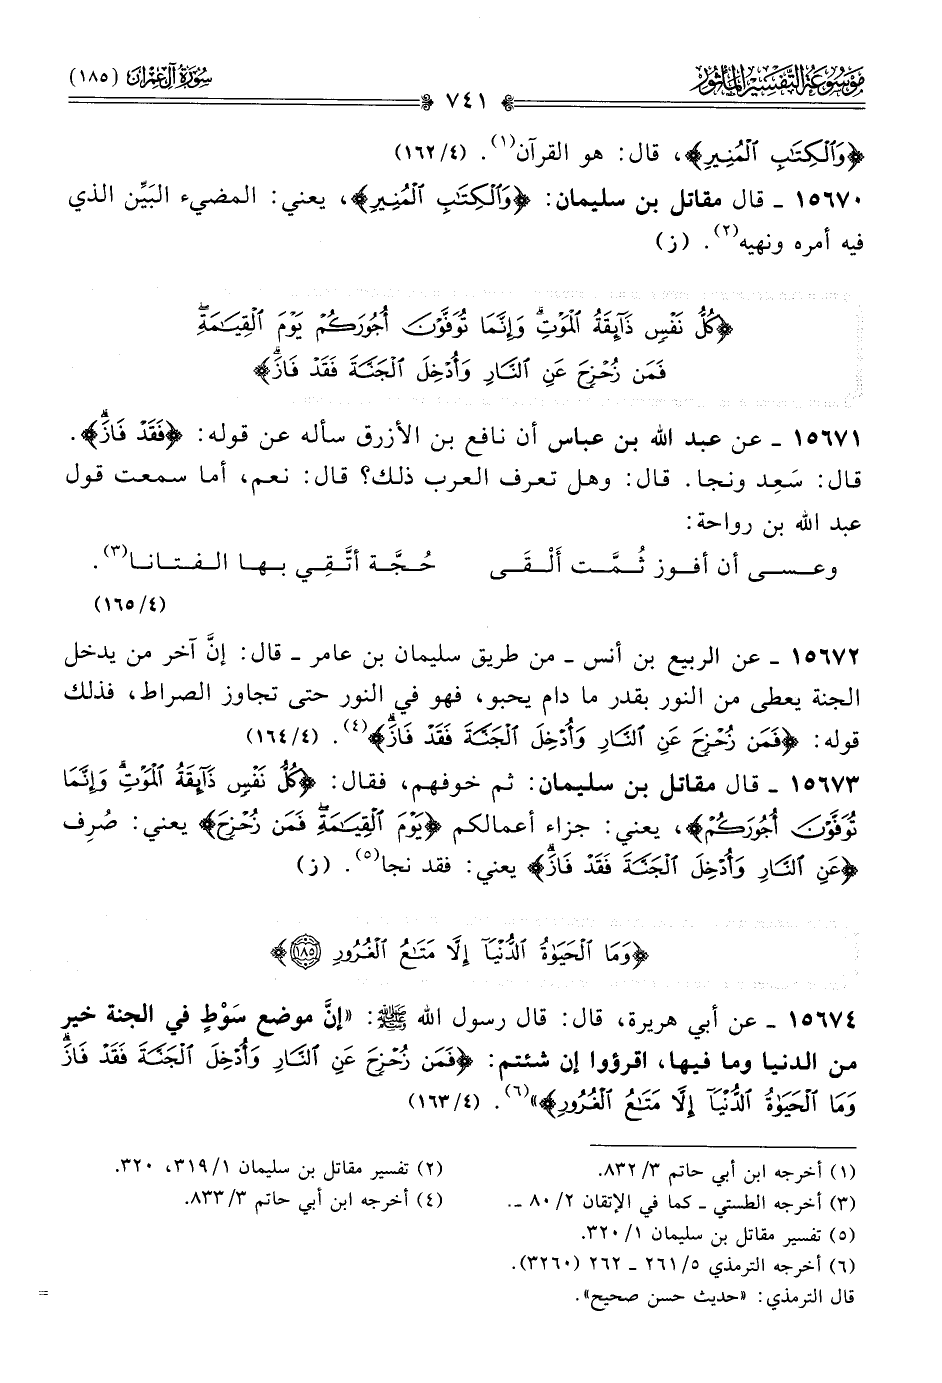 مَوْسُوعَة التَّفْسِير المَأثُور
٧٤١
سُورَةُ آلِ عِمْرَان (١٨٥)
﴿وَٱلْكِتَٰبِ ٱلْمُنِيرِ﴾، قال: هو القرآن(١). (٤/ ١٦٢)
١٥٦٧٠ ـ قال مقاتل بن سليمان: ﴿وَٱلْكِتَٰبِ ٱلْمُنِيرِ﴾، يعني: المضيء البَيِّن الذي
فيه أمره ونهيه(٢). (ز)
﴿كُلُّ نَفْسٍ ذَآئِقَةُ ٱلْمَوْتِۗ وَإِنَّمَا تُوَفَّوْنَ أُجُورَكُمْ يَوْمَ ٱلْقِيَٰمَةِۖ
فَمَن زُحْزِحَ عَنِ ٱلنَّارِ وَأُدْخِلَ ٱلْجَنَّةَ فَقَدْ فَازَۗ﴾
١٥٦٧١ ـ عن عبد الله بن عباس أن نافع بن الأزرق سأله عن قوله: ﴿فَقَدْ فَازَۗ﴾.
قال: سَعِد ونجا. قال: وهل تعرف العرب ذلك؟ قال: نعم، أما سمعت قول
عبد الله بن رواحة:
وعـــسى أن أفوز ثُمَّت أَلْقَى حُجَّة أتَّقِي بها الفتانا(٣).
(٤/ ١٦٥)
١٥٦٧٢ ـ عن الربيع بن أنس ـ من طريق سليمان بن عامر ـ قال: إنَّ آخر من يدخل
الجنة يعطى من النور بقدر ما دام يحبو، فهو في النور حتى تجاوز الصراط، فذلك
قوله: ﴿فَمَن زُحْزِحَ عَنِ ٱلنَّارِ وَأُدْخِلَ ٱلْجَنَّةَ فَقَدْ فَازَۗ﴾(٤). (٤/ ١٦٤)
١٥٦٧٣ ـ قال مقاتل بن سليمان: ثم خوفهم، فقال: ﴿كُلُّ نَفْسٍ ذَآئِقَةُ ٱلْمَوْتِۗ وَإِنَّمَا
تُوَفَّوْنَ أُجُورَكُمْ﴾، يعني: جزاء أعمالكم ﴿يَوْمَ ٱلْقِيَٰمَةِۖ فَمَن زُحْزِحَ﴾ يعني: صُرِف
﴿عَنِ ٱلنَّارِ وَأُدْخِلَ ٱلْجَنَّةَ فَقَدْ فَازَۗ﴾ يعني: فقد نجا(٥). (ز)
﴿وَمَا ٱلْحَيَوٰةُ ٱلدُّنْيَآ إِلَّا مَتَٰعُ ٱلْغُرُورِ ١٨٥﴾
١٥٦٧٤ ـ عن أبي هريرة، قال: قال رسول الله ﷺ: «إنَّ موضع سَوْطٍ في الجنة خير
من الدنيا وما فيها، اقرؤوا إن شئتم: ﴿فَمَن زُحْزِحَ عَنِ ٱلنَّارِ وَأُدْخِلَ ٱلْجَنَّةَ فَقَدْ فَازَۗ
وَمَا ٱلْحَيَوٰةُ ٱلدُّنْيَآ إِلَّا مَتَٰعُ ٱلْغُرُورِ﴾»(٦). (٤/ ١٦٣)
(١) أخرجه ابن أبي حاتم ٣/ ٨٣٢.
(٢) تفسير مقاتل بن سليمان ١/ ٣١٩، ٣٢٠.
(٣) أخرجه الطستي ـ كما في الإتقان ٢/ ٨٠ ـ.
(٤) أخرجه ابن أبي حاتم ٣/ ٨٣٣.
(٥) تفسير مقاتل بن سليمان ١/ ٣٢٠.
(٦) أخرجه الترمذي ٥/ ٢٦١ ـ ٢٦٢ (٣٢٦٠).
قال الترمذي: «حديث حسن صحيح».
=